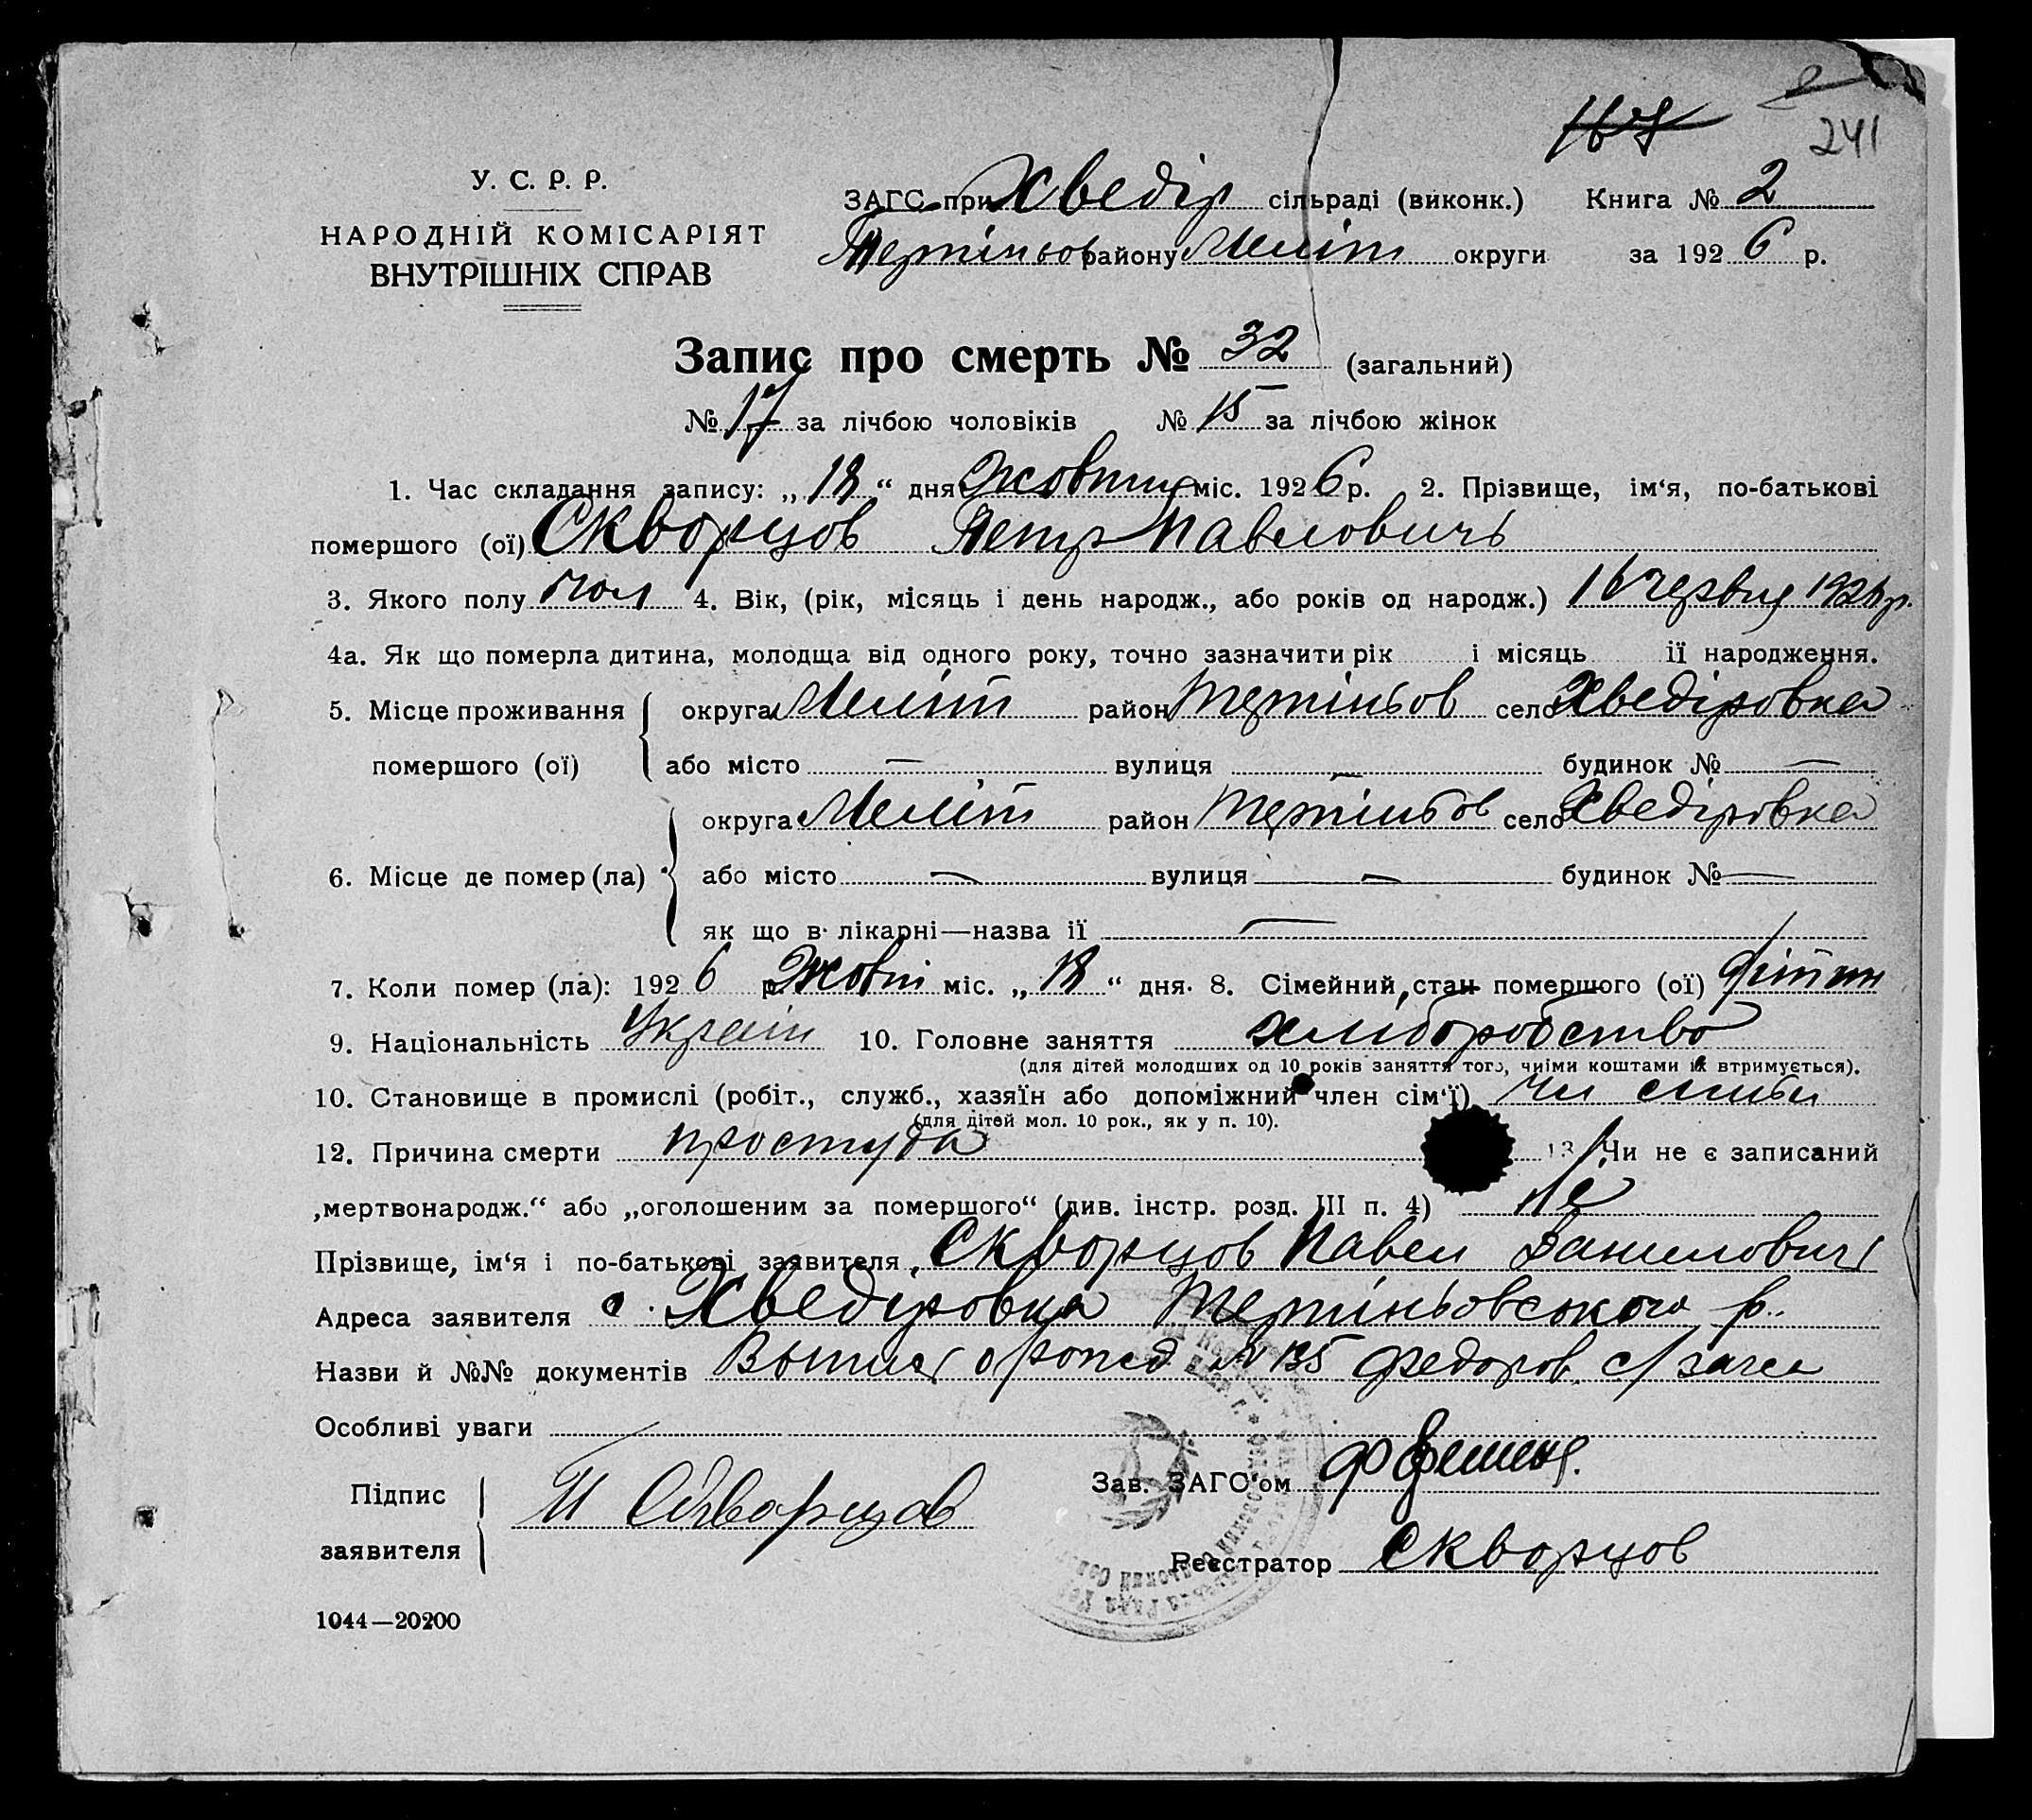 241
У. С. Р. Р.
НАРОДНІЙ КОМІСАРІЯТ
ВНУТРІШНІХ СПРАВ
ЗАГС при Хведір сільраді (виконк.) Книга № 2
району Меліт округи за 1926 р.
Запис про смерть № 32 (загальний)
№ 17 за лічбою чоловіків № 15 за лічбою жінок
1. Час складання запису: „18“ дня Жовтня міс. 1926 р. 2. Прізвище, ім‘я, по-батькові
помершого (ої) Скворцов Петр Павловичъ
3. Якого полу чол 4. Вік, (рік, місяць і день народж., або років од народж.) 16 червня 1926 р.
4а. Як що померла дитина, молодща від одного року, точно зазначити рік і місяць її народження.
5. Місце проживання округа Меліт район село Хведіровка
помершого (ої) або місто — вулиця — будинок № —
округа Меліт район село Хведіровка
6. Місце де помер (ла) або місто — вулиця — будинок № —
як що в лікарні—назва її —
7. Коли помер (ла): 1926 р. Жовт міс. „18“ дня. 8. Сімейний стан помершого (ої)
9. Національність Украін 10. Головне заняття хліборобство
(для дітей молодших од 10 років заняття того, чиїми коштами їх втримується).
10. Становище в промислі (робіт., служб., хазяїн або допоміжний член сім‘ї)
(для дітей мол. 10 рок., як у п. 10).
12. Причина смерти простуда 13. Чи не є записаний
„мертвонародж.“ або „оголошеним за помершого“ (див. інстр. розд. III п. 4) Не
Прізвище, ім‘я і по-батькові заявителя Скворцов Павел Данилович
Адреса заявителя с. Хведіровка р.
Назви й №№ документів № 135 Федоров. с/загса
Особливі уваги
Підпис
заявителя
П Скворцов
Зав. ЗАГС‘ом
Реєстратор Скворцов
1044—20200